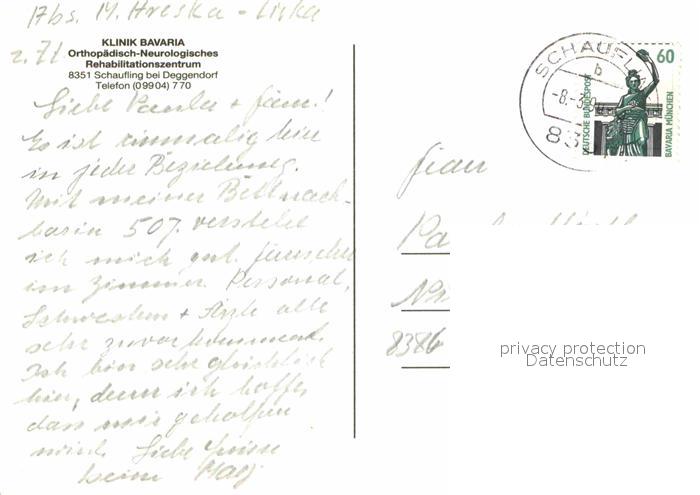 Abs. M. Hreska - Linka
z. Zt.
KLINIK BAVARIA
Orthopädisch-Neurologisches
Rehabilitationszentrum
8351 Schaufling bei Deggendorf
Telefon (09904) 770
Liebe Paula + Fam.!
Es ist einmalig hier
in jeder Beziehung.
Mit meiner Bettnach-
barin 507. verstehe
ich mich gut.
im Zimmer. Personal,
Schwestern + Ärzte alle
sehr zuvorkommend.
Ich bin sehr glücklich
hier, denn ich hoffe,
dass mir geholfen
wird. Liebe Grüsse
SCHAUFL
b
-8.-3.
835
60
DEUTSCHE BUNDESPOST
BAVARIA MÜNCHEN
Frau
Pa
8386
privacy protection
Datenschutz